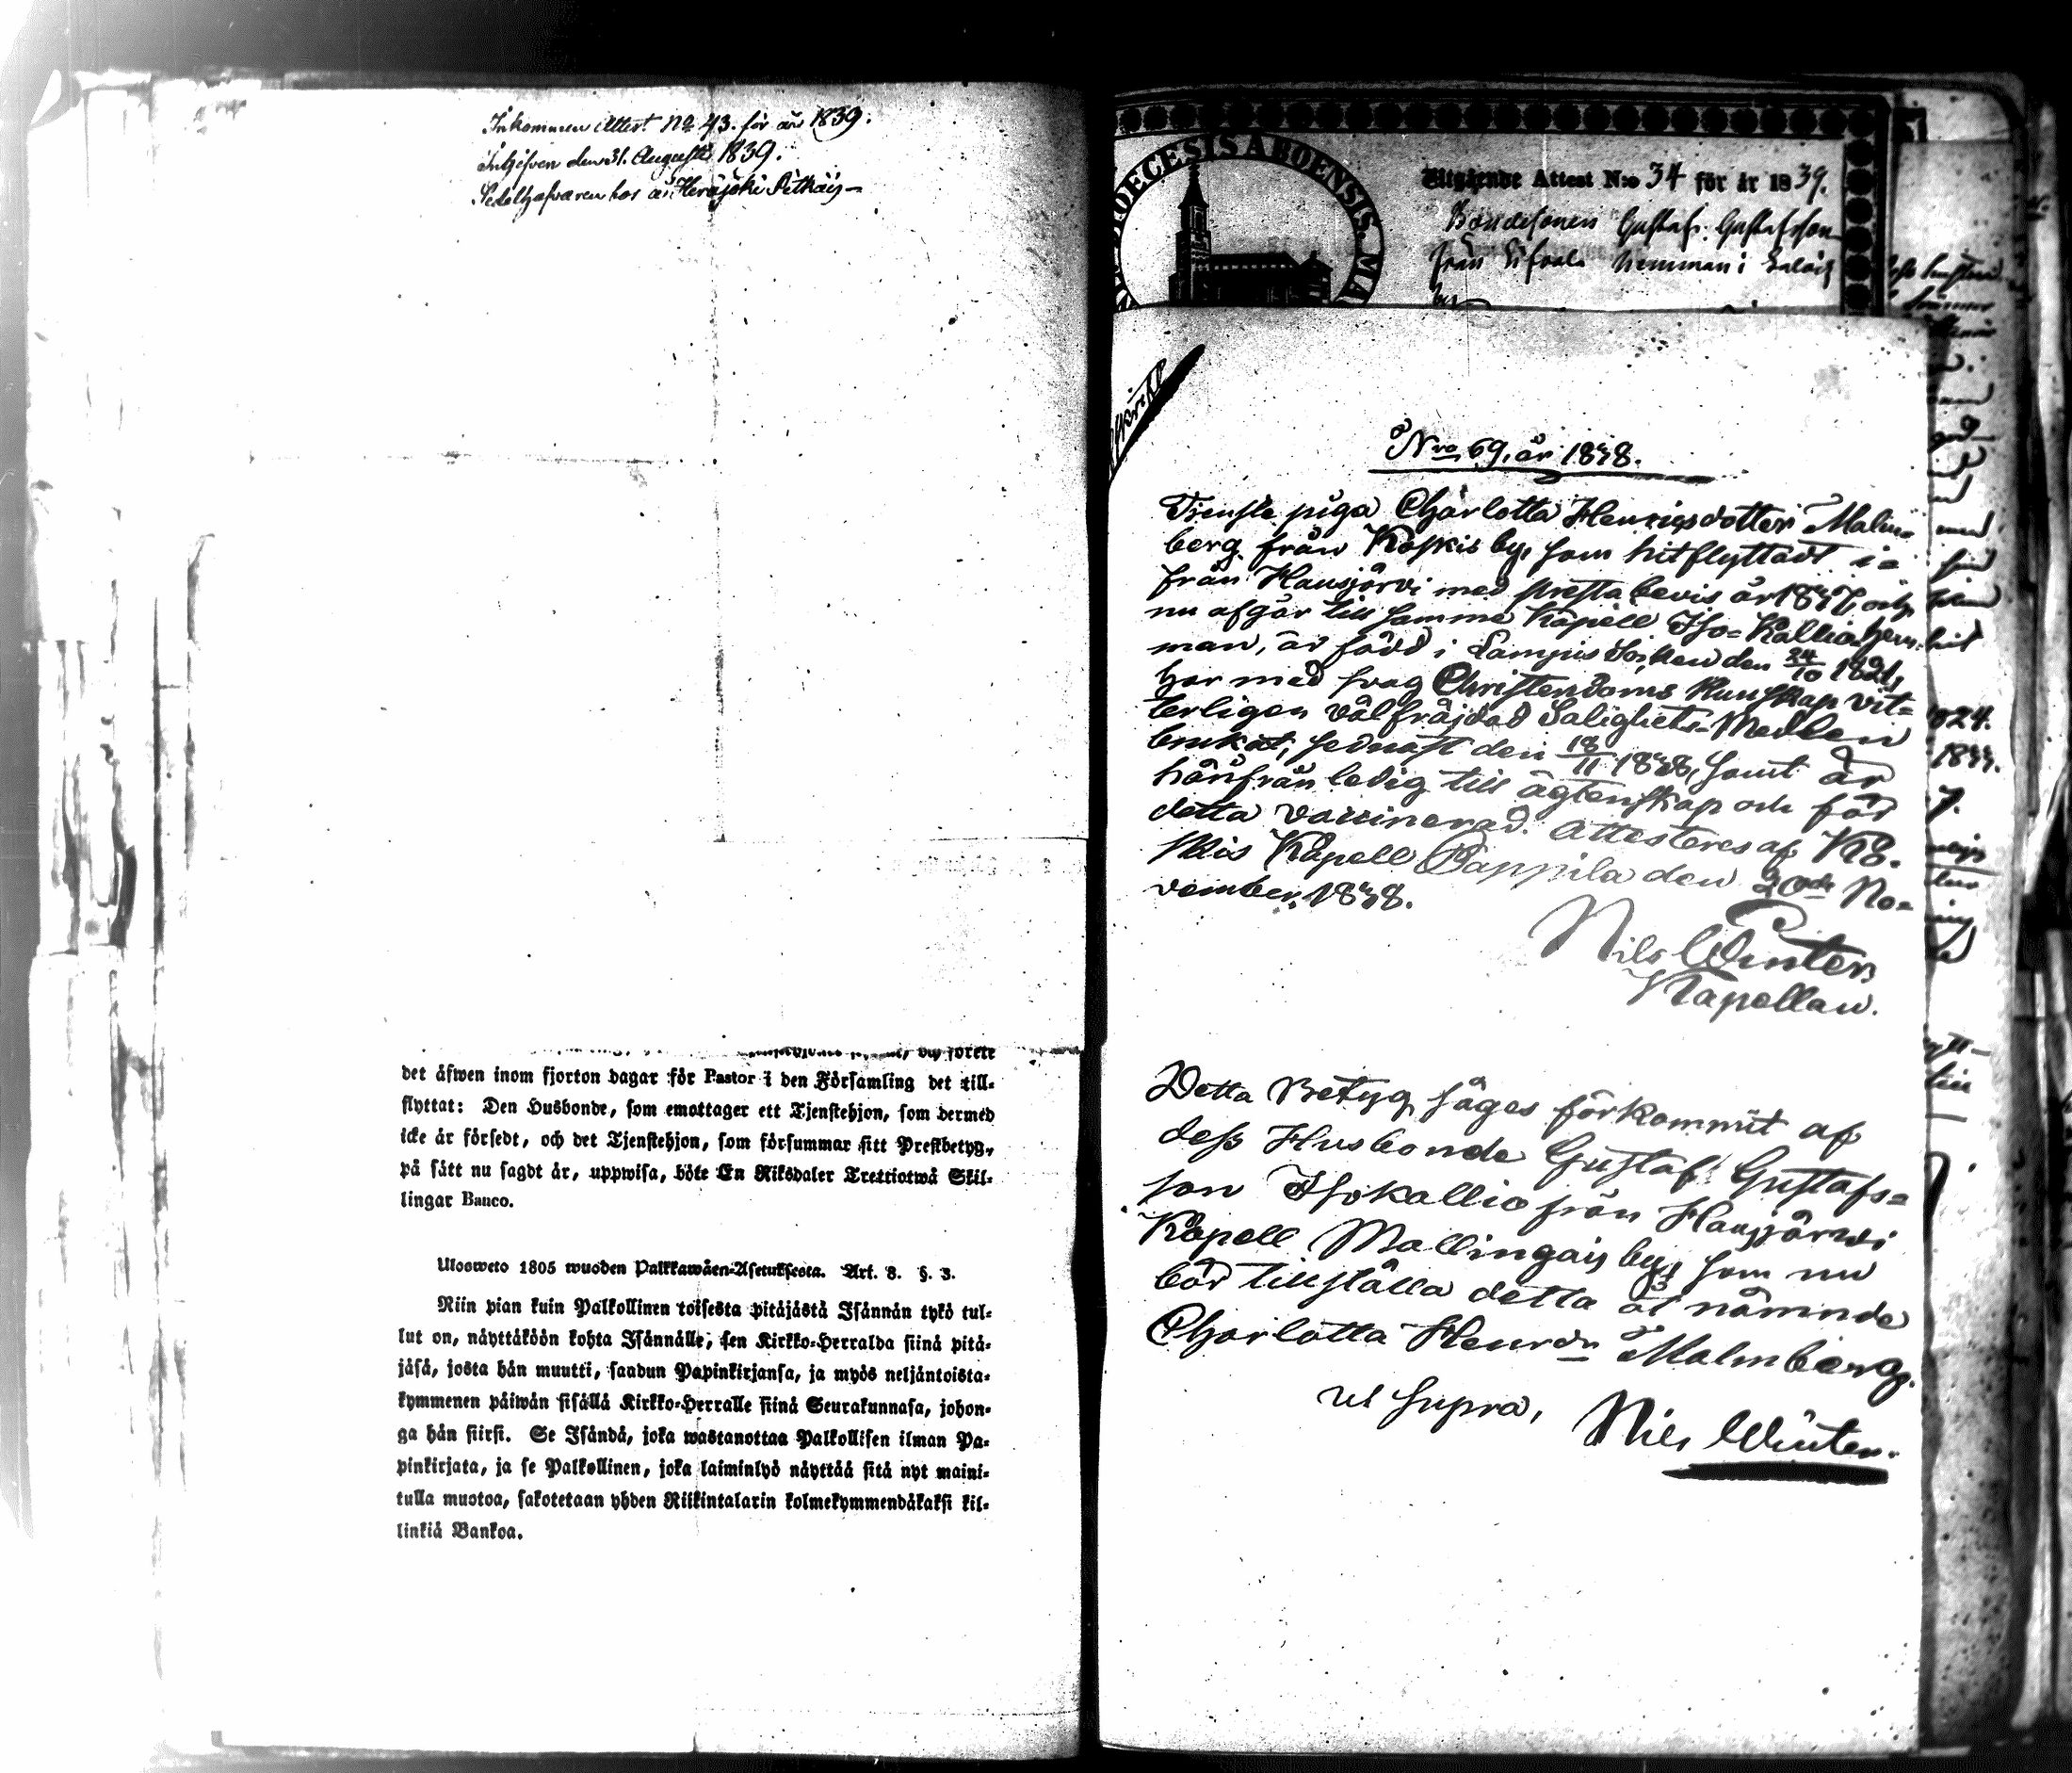 Inkommen Attest No 43. för år 1839.
Ingifven den 31. Augusti 1839.
Sedelhafvaren hos å Herajoki Pitkäis
förete
det äfwen inom fjorton dagar för Pastor i den Församling det till-
flyttat: Den Husbonde, som emottager ett Tjenstehjon, som dermed
icke är försedt, och det Tjenstehjon, som försummar sitt Prestbetyg,
på sätt nu sagdt är, uppwisa, böte En Riksdaler Trettiotwå Skil-
lingar Banco.
Ulosweto 1805 wuoden Palkkawäen-Asetuksesta. Art. 8. §. 3.
Niin pian kuin Palkollinen toisesta pitäjästä Isännän tykö tul-
lut on, näyttäköön kohta Isännälle, sen Kirkko-Herralda siinä pitä-
jäsä, josta hän muutti, saadun Papinkirjansa, ja myös neljäntoista-
kymmenen päiwän sisällä Kirkko-Herralle siinä Seurakunnasa, johon-
ga hän siirsi. Se Isändä, joka wastanottaa Palkollisen ilman Pa-
pinkirjata, ja se Palkollinen, joka laiminlyö näyttää sitä nyt maini-
tulla muotoa, sakotetaan yhden Riikintalarin kolmekymmendäkaksi kil-
linkiä Bankoa.
DIOECESIS ABOENSIS. MA
Utgående Attest N:o 34 för år 1839.
Bondesonen Gustaf Gustafsson
från hemman i
by
Afskrift
Nro 69, år 1848.
Tienste piga Charlotta Henricsdotter Malm-
berg från Koskis by, som hitflyttadt i=
från Hausjärvi med prestabevis år 1847, och
nu afgår till samma Kapell Iso=Kallio hem-
man, är född i Lampis Socken den 24/10 1821,
har med svag Christendoms Kunskap vit=
terligen välfräjdad Salighets-Medlen
brukat, sednast den 18/11 1848, samt är
härifrån ledig till ägtenskap och för
detta vaccinerad. Attesteres af Ko-
skis Kapell Pappila den 20de No=
vember 1848.
Nils Winter
Kapellan.
Detta Betyg säges förkommit af
dess Husbonde Gustaf Gustafs=
son Isokallio från Hausjärvi
Kapell Mallingais by, som nu
bör tillställa detta åt nämnde
Charlotta Henrdr Malmberg.
ut supra, Nils Winter.